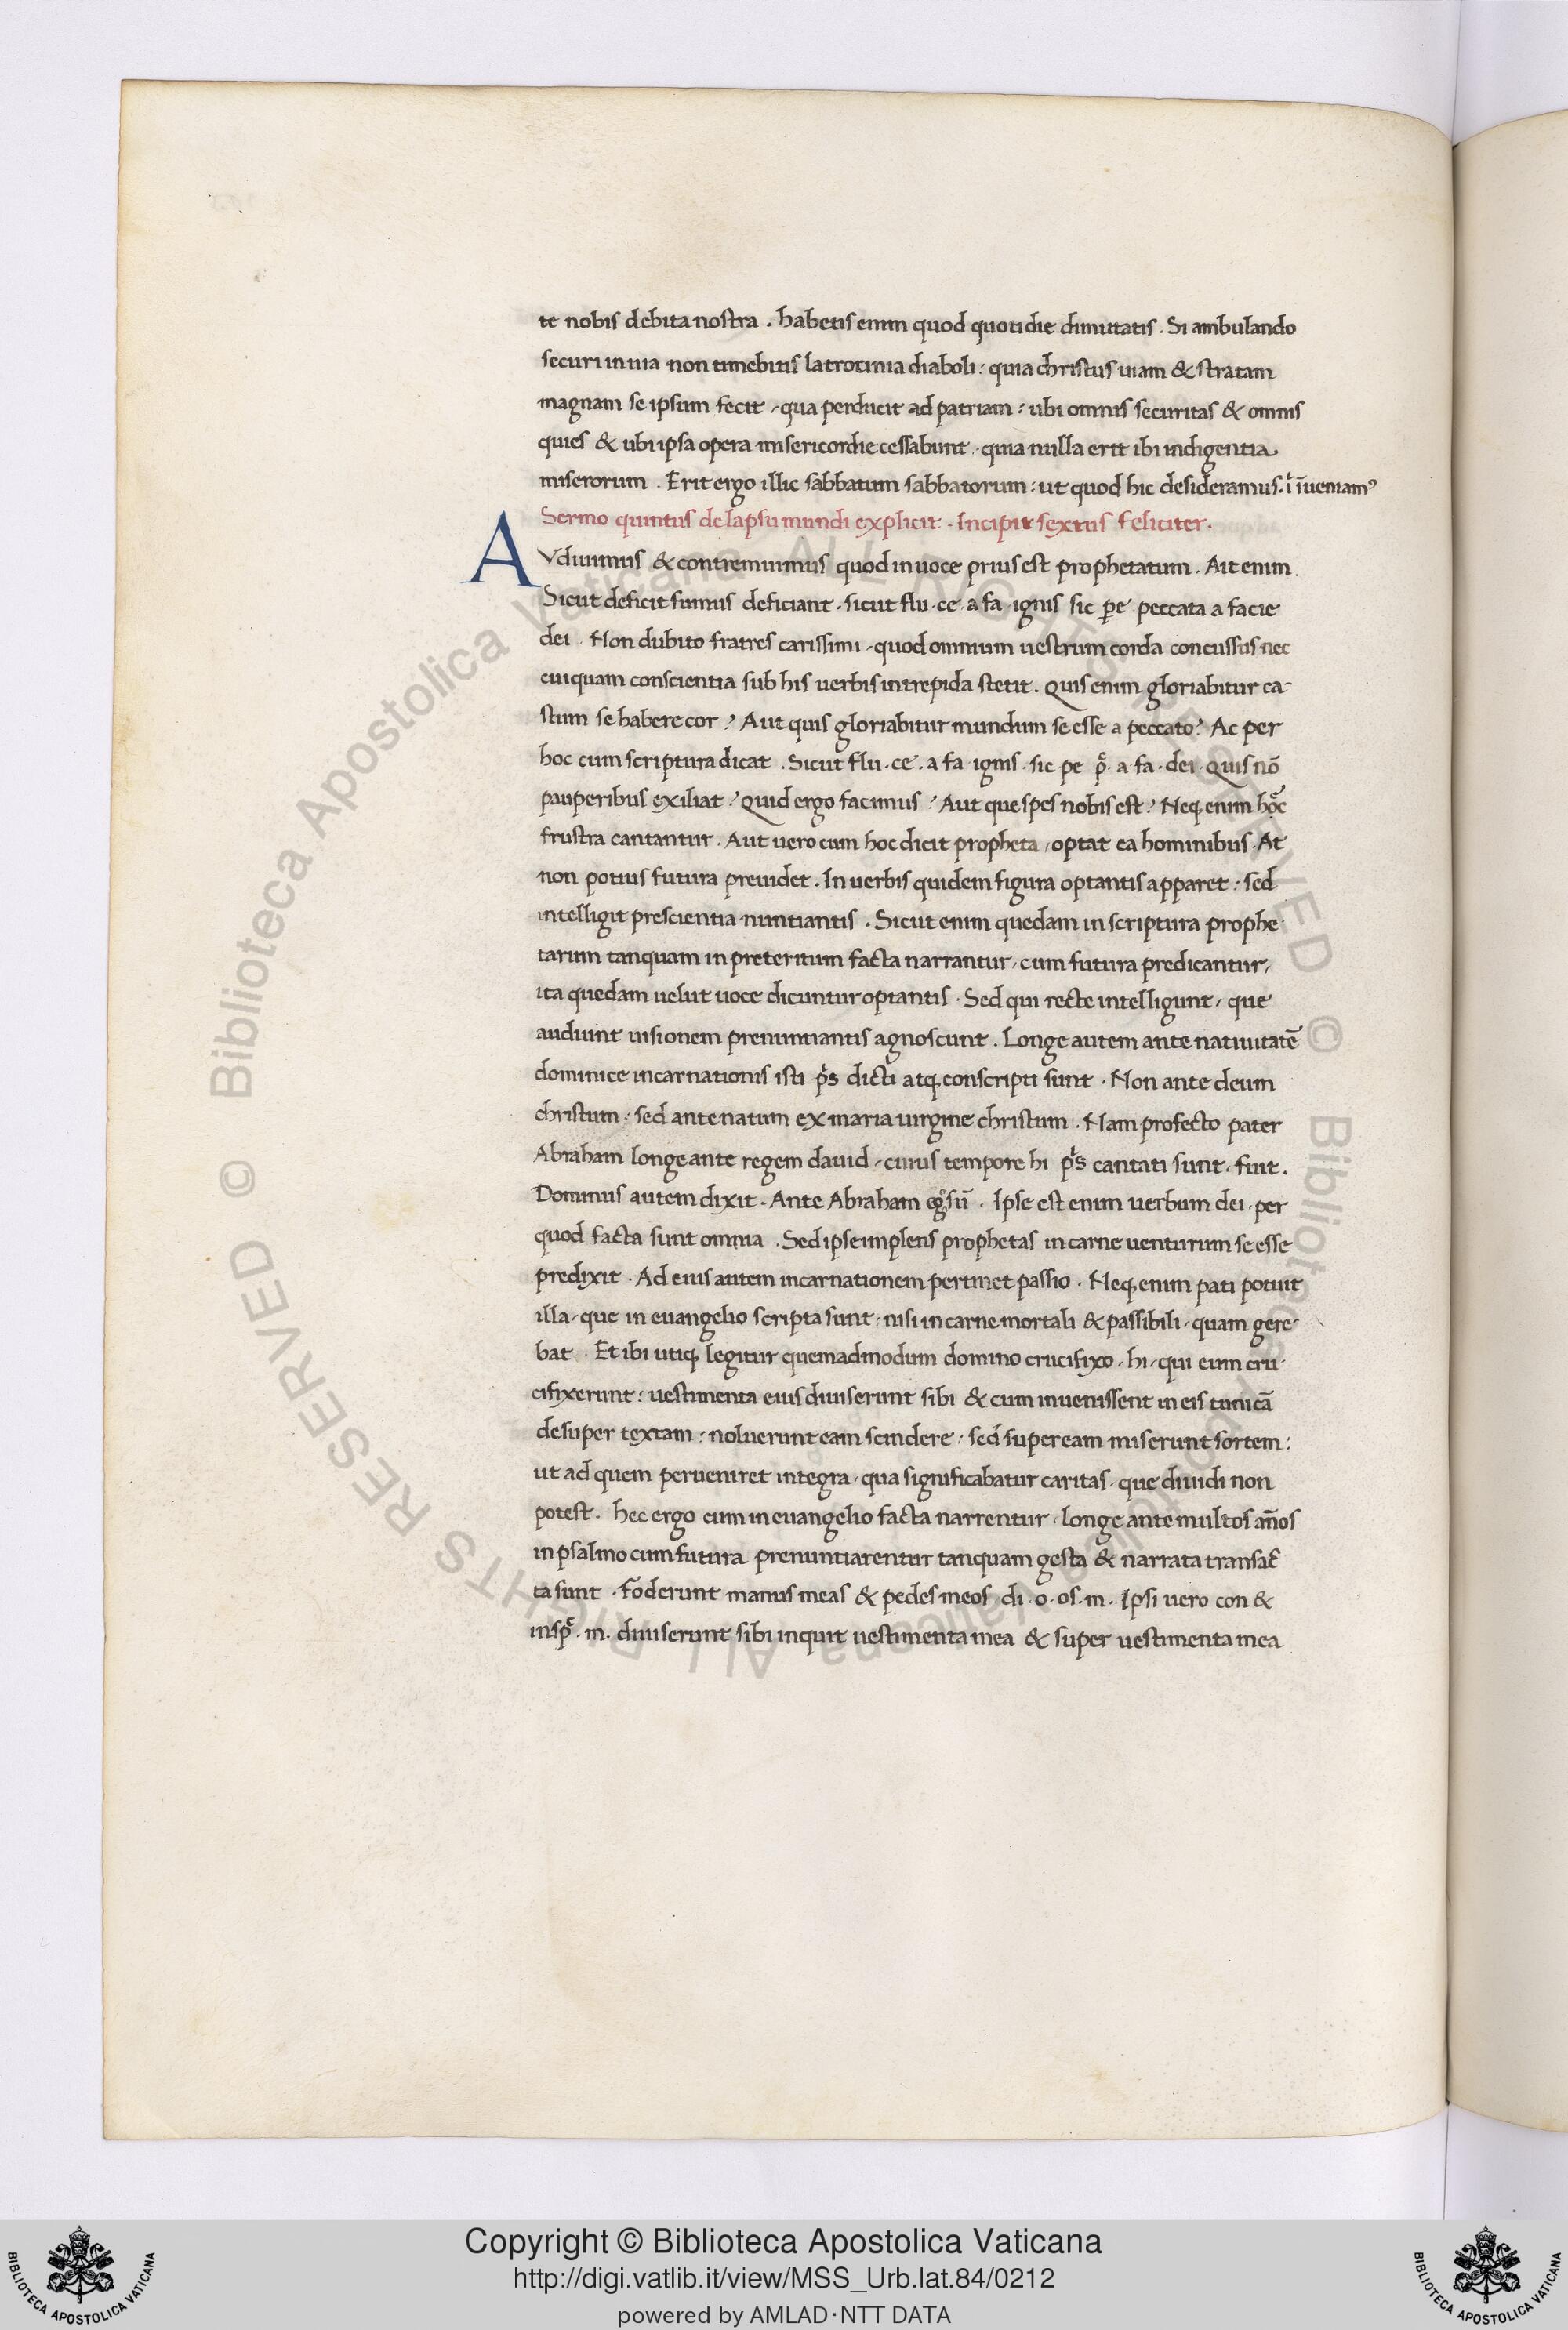 te nobis debita nostra . habetis enim quod quotidie dimittatis . Si ambulando
securi in uia non timebitis latrocinia diaboli : quia christus uiam & stratam
magnam se ipsum fecit , qua perducit ad patriam : ubi omnis securitas & omnis
quies & ubi ipsa opera misericordie cessabunt , quia nulla erit ibi indigentia
miserorum . Erit ergo illic sabbatum sabbatorum : ut quod hic desideramus . iueniam⁹
Sermo quintus de lapsu mundi explicit . Incipit sextus feliciter .
AVdiuimus & contremuimus quod in uoce prius est prophetatum . Ait enim .
Sicut deficit fumus deficiant . sicut flu . ce . a fa . ignis sic pe peccata a facie
dei . Non dubito fratres carissimi , quod omnium uestrum corda concussus nec
cuiquam conscientia sub his uerbis intrepida stetit . Quis enim gloriabitur ca-
stum se habere cor ? Aut quis gloriabitur mundum se esse a peccato ? Ac per
hoc cum scriptura dicat . Sicut flu . ce . a fa . ignis . sic pe . a fa . dei . Quis nō
pauperibus exiliat ? Quid ergo facimus ? Aut que spes nobis est ? Neq, enim
frustra cantantur . Aut uero cum hoc dicit propheta , optat ea hominibus . At
non potius futura preuidet . In uerbis quidem figura optantis apparet : sed
intelligit prescientia nuntiantis . Sicut enim quedam in scriptura prophe
tarum tanquam in preteritum facta narrantur , cum futura predicantur ,
ita quedam uelut uoce dicuntur optantis . Sed qui recte intelligunt , que
audiunt uisionem prenuntiantis agnoscunt . Longe autem ante natiuitatē
dominice incarnationis isti ps dicti atq, conscripti sunt . Non ante deum
christum . sed ante natum ex maria uirgine christum . Nam profecto pater
Abraham longe ante regem dauid , cuius tempore hi ps cantati sunt , fuit .
Dominus autem dixit . Ante Abraham ego sū . Ipse est enim uerbum dei . per
quod facta sunt omnia . Sed ipse implens prophetas in carne uenturum se esse
predixit . Ad eius autem incarnationem pertinet passio . Neq, enim pati potuit
illa , que in euangelio scripta sunt , nisi in carne mortali & passibili , quam gere-
bat . Et ibi utiq, legitur quemadmodum domino crucifixo , hi , qui eum cru-
cifixerunt : uestimenta eius diuiserunt sibi & cum inuenissent in eis tunicā
desuper textam : noluerunt eam scindere : sed super eam miserunt sortem :
ut ad quem perueniret integra , qua significabatur caritas , que diuidi non
potest . hec ergo cum in euangelio facta narrentur . longe ante multos ān̄os
in psalmo cum futura prenuntiarentur tanquam gesta & narrata transac̄
ta sunt . Foderunt manus meas & pedes meos di . o . os . m . Ipsi uero con &
insp . m . diuiserunt sibi inquit uestimenta mea & super uestimenta mea
© Biblioteca Apostolica Vaticana ALL RIGHTS RESERVED
© Biblioteca Apostolica Vaticana ALL RIGHTS RESERVED
Copyright © Biblioteca Apostolica Vaticana
http://digi.vatlib.it/view/MSS_Urb.lat.84/0212
powered by AMLAD·NTT DATA
BIBLIOTECA APOSTOLICA VATICANA
BIBLIOTECA APOSTOLICA VATICANA